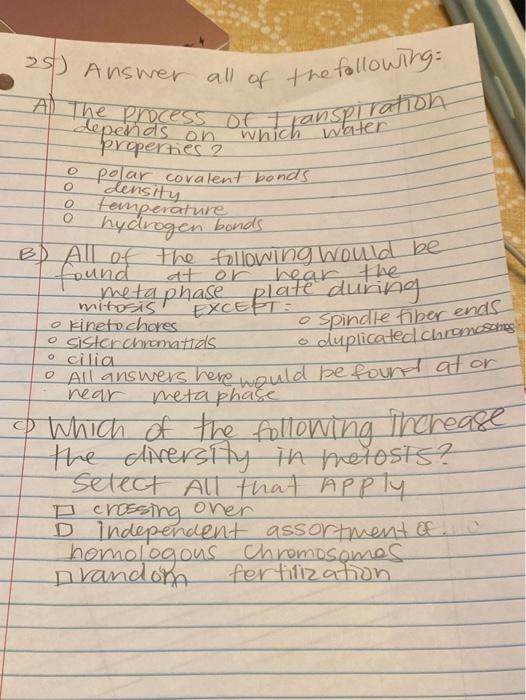 25) Answer all of the following:
A) The process of transpiration
depends on which water
properties?
o polar covalent bonds
o density
o temperature
o hydrogen bonds
B) All of the following would be
found at or near the
metaphase plate during
mitosis EXCEPT:
o kinetochores
o spindle fiber ends
o sister chromatids
o duplicated chromosomes
o cilia
o All answers here would be found at or
near metaphase
c) Which of the following increase
the diversity in meiosis?
Select All that Apply
□ crossing over
□ independent assortment of
homologous chromosomes
□ random fertilization